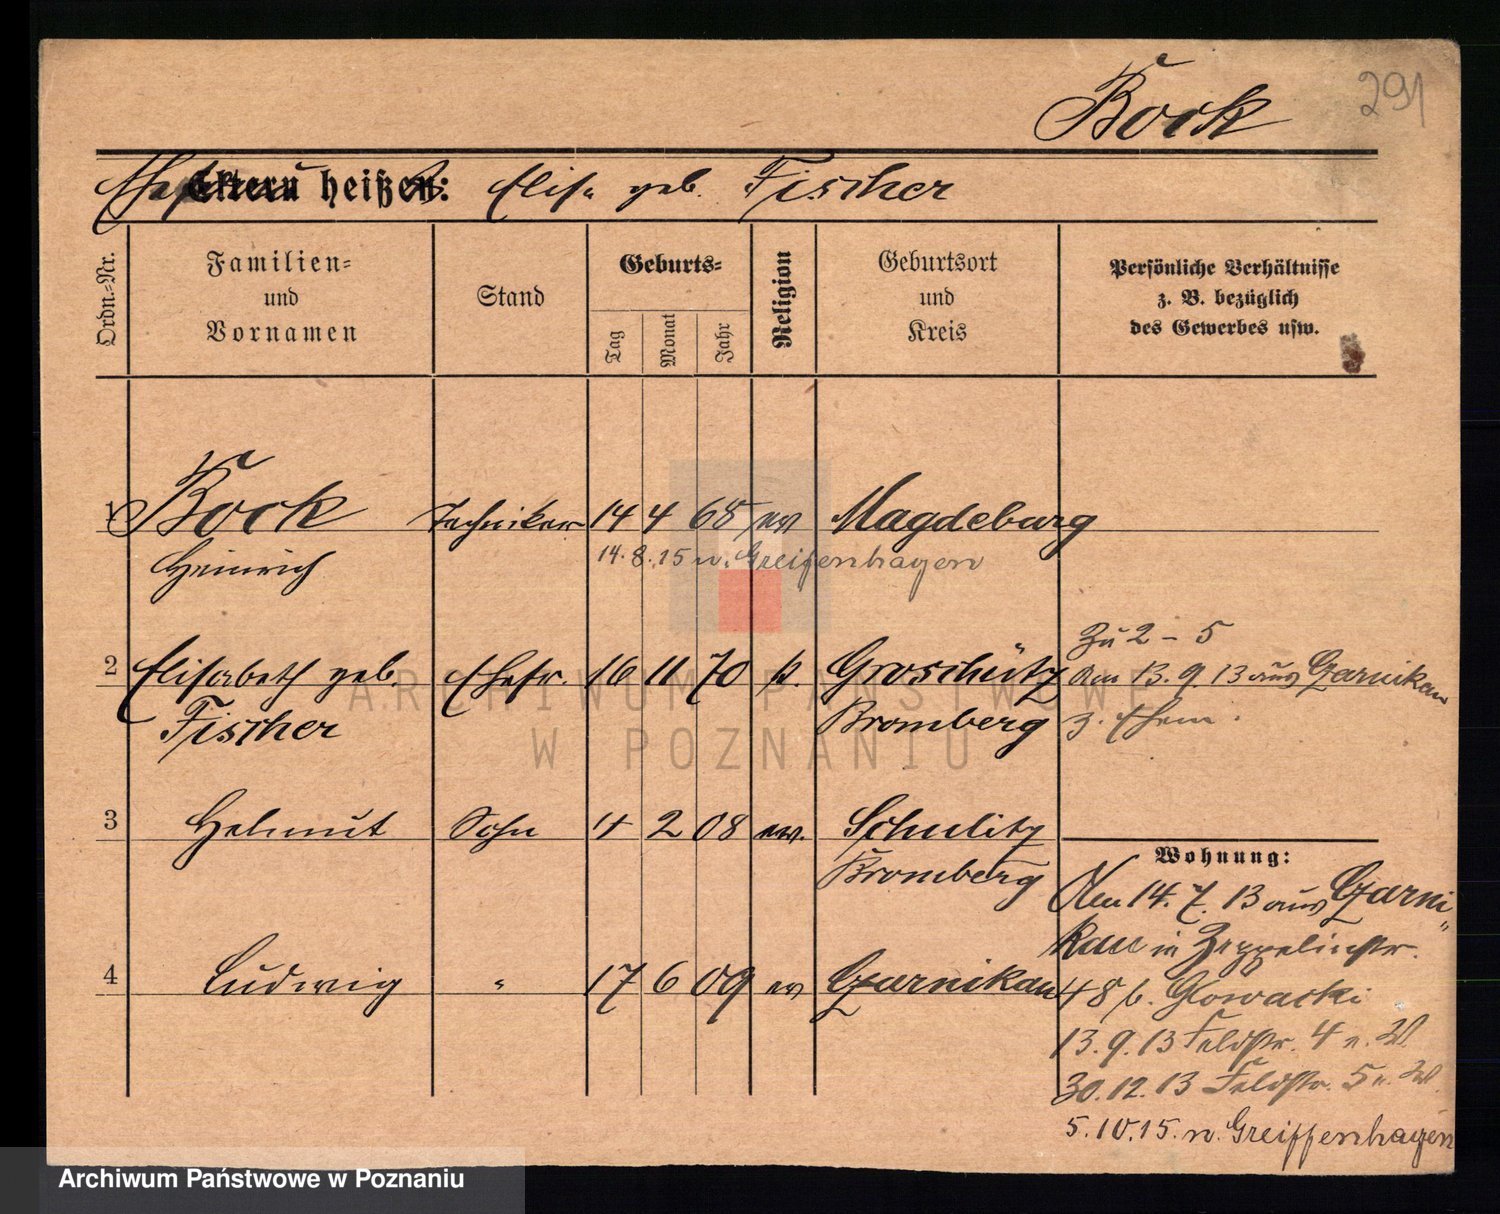 291
Bock
Eltern heißen: Elis. geb. Fischer
Ordn.-Nr.
Familien- und Vornamen
Stand
Geburts-
Tag
Monat
Jahr
Religion
Geburtsort und Kreis
Persönliche Verhältnisse z. B. bezüglich des Gewerbes usw.
1 Bock Techniker 14 4 68 ev Magdeburg
Heinrich 14.8.15 n. Greifenhagen
Zu 2 - 5
2 Elisabeth geb. Ehefr. 16 11 70 k. Groschütz am 13.9.13 aus Czarnikau
Fischer Bromberg z. Ehem.
3 Helmut Sohn 4 2 08 ev. Schulitz
Bromberg
Wohnung:
Am 14.7.13 aus Czarni-
kau in Zeppelinstr.
4 Ludwig " 17 6 09 ev Czarnikau
48 b. Glowacki
13.9.13 Feldstr. 4 n. W.
30.12.13 Feldstr. 5 n. W.
5.10.15. n. Greiffenhagen
ARCHIWUM PAŃSTWOWE
W POZNANIU
Archiwum Państwowe w Poznaniu